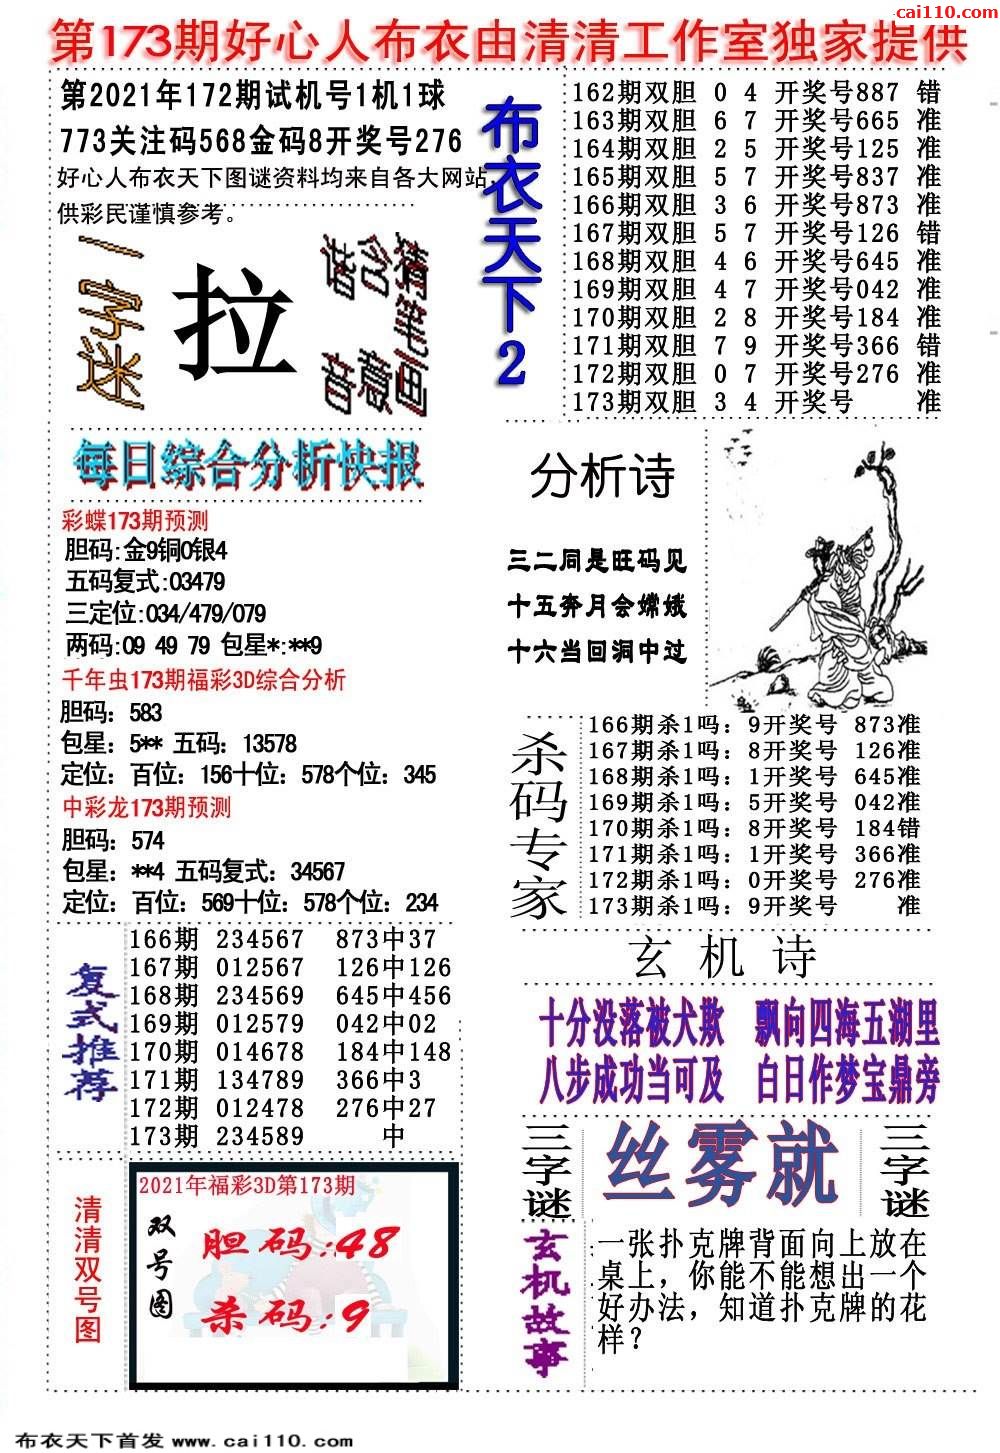 cai110.com
第173期好心人布衣由清清工作室独家提供
第2021年172期试机号1机1球
773关注码568金码8开奖号276
好心人布衣天下图谜资料均来自各大网站,
供彩民谨慎参考。
一字迷
拉
猜笔画
含意
谐音
布衣天下2
162期双胆 0 4 开奖号887 错
163期双胆 6 7 开奖号665 准
164期双胆 2 5 开奖号125 准
165期双胆 5 7 开奖号837 准
166期双胆 3 6 开奖号873 准
167期双胆 5 7 开奖号126 错
168期双胆 4 6 开奖号645 准
169期双胆 4 7 开奖号042 准
170期双胆 2 8 开奖号184 准
171期双胆 7 9 开奖号366 错
172期双胆 0 7 开奖号276 准
173期双胆 3 4 开奖号 准
每日综合分析快报
彩蝶173期预测
胆码:金9铜0银4
五码复式:03479
三定位:034/479/079
两码:09 49 79 包星*:**9
千年虫173期福彩3D综合分析
胆码：583
包星：5** 五码：13578
定位：百位：156十位：578个位：345
中彩龙173期预测
胆码：574
包星：**4 五码复式：34567
定位：百位：569十位：578个位：234
分析诗
三二同是旺码见
十五奔月会嫦娥
十六当回洞中过
杀码专家
166期杀1吗：9开奖号 873准
167期杀1吗：8开奖号 126准
168期杀1吗：1开奖号 645准
169期杀1吗：5开奖号 042准
170期杀1吗：8开奖号 184错
171期杀1吗：1开奖号 366准
172期杀1吗：0开奖号 276准
173期杀1吗：9开奖号 准
复式推荐
166期 234567 873中37
167期 012567 126中126
168期 234569 645中456
169期 012579 042中02
170期 014678 184中148
171期 134789 366中3
172期 012478 276中27
173期 234589 中
玄机诗
十分没落被犬欺 飘向四海五湖里
八步成功当可及 白日作梦宝鼎旁
三字谜
丝雾就
三字谜
清清双号图
2021年福彩3D第173期
双号图
胆码:48
杀码:9
玄机故事
一张扑克牌背面向上放在
桌上，你能不能想出一个
好办法，知道扑克牌的花
样？
布衣天下首发 www.cai110.com